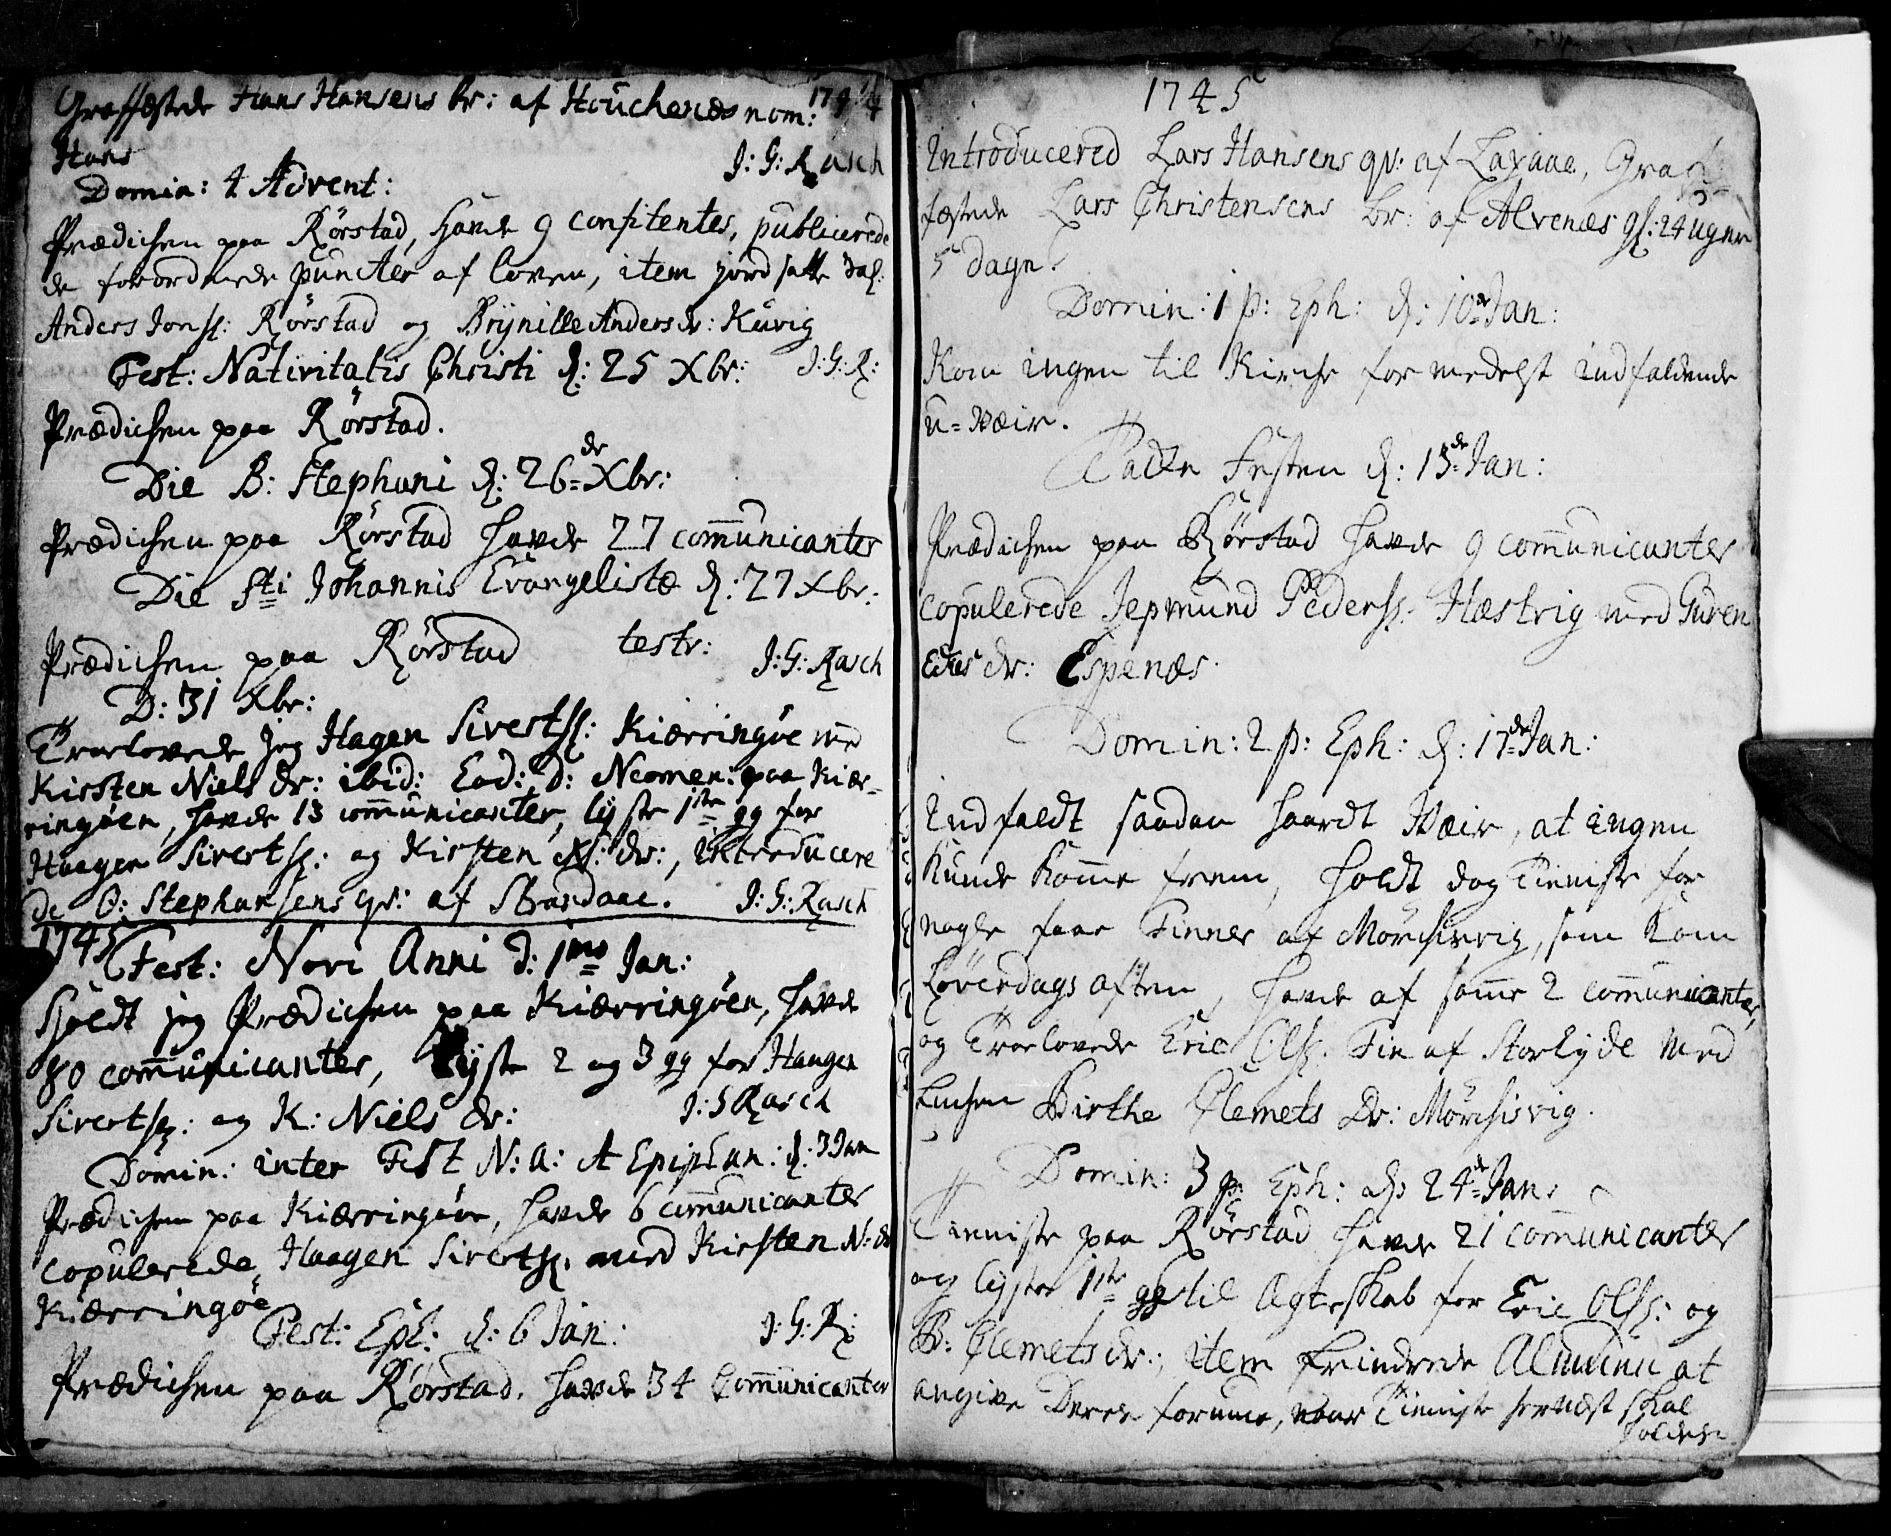 1744
Graffæstede Hans Hansens br: af Houchenæs nom:
Hans
J: G: Rasch
Domin: 4 Advent:
Prædichen paa Rörstad, havde 9 confitentes, publicerede
de forordnede puncter af loven, item jord satte
Anders Jonss: Rörstad og Brÿnille Anders dr: Kuvig
J: G: R:
Fest: Nativitatis Christi d: 25 Xbr:
Prædichen paa Rörstad.
Die B: Stephani d: 26de Xbr:
Prædichen paa Rörstad havde 27 com̄unicanter
Die Sti Johannis Evangelistæ d: 27 Xbr:
Prædichen paa Rörstad testr:
J: G: Rasch
D: 31 Xbr:
Troelovede jeg Hagen Sivertss: Kiærringöe med
Kirsten Niels dr: ibid: Eod: d: Ncomen: paa Kiær-
ringöen, havde 13 com̄unicanter, lÿste 1ste gg for
Haagen Sivertss: og Kirsten N: dr:, introducere
de O: Stephansens qv: af Strandaae.
J: G: Rasch
1745
Fest: Novi Anni d: 1mo Jan:
Holdt jeg Prædichen paa Kiærringöen, havde
80 com̄unicanter, lÿste 2 og 3 gg for Haagen
Sivertss: og K: Niels dr:
J: G Rasch
Domin: inter Fest N: A: et Epiphan: d: 3 Jan
Prædichen paa Kiærringöen, havde 6 com̄unicanter
copulerede Haagen Sivertss: med Kirsten N: dr
Kiærringöe
J: G: R:
Fest: Eph: d: 6 Jan:
Prædichen paa Rörstad, havde 34 Com̄unicanter
1745
Introducered Lars Hansens qv: af Laxaae, Graf
fæstede Lars Christensens br: af Alvenæs gl: 24 Uger
5 dage.
Domin: 1 p: Eph: d: 10de Jan:
Kom ingen til Kirche formedelst indfaldende
u-Væir.
Tacke Festen d: 13de Jan:
Prædichen paa Rörstad havde 9 com̄unicanter
copulerede Jepmund Pederss: Hæstvig med Guren
dr: Espenæs.
Domin: 2 p: Eph: d: 17de Jan:
Indfaldt saadan haardt Væir, at ingen
kunde kom̄e frem, holdt dog Tieniste for
nogle faae Finner af Mörchisvig, som kom
Löverdags aften, havde af som̄e 2 com̄unicanter,
og Troelovede Eric Olss: Fin af Storlÿde med
Enchen Birthe Clemets dr: Mörchisvig.
Domin: 3 p: Eph: d: 24de Jan:
Tieniste paa Rörstad havde 21 com̄unicanter
og lÿste 1ste gg til Ægteskab for Eric Olss: og
B: Clemets dr:, item erindrede Almuen at
angive Deres formue, naar Tieniste hernæst skal
holdes.